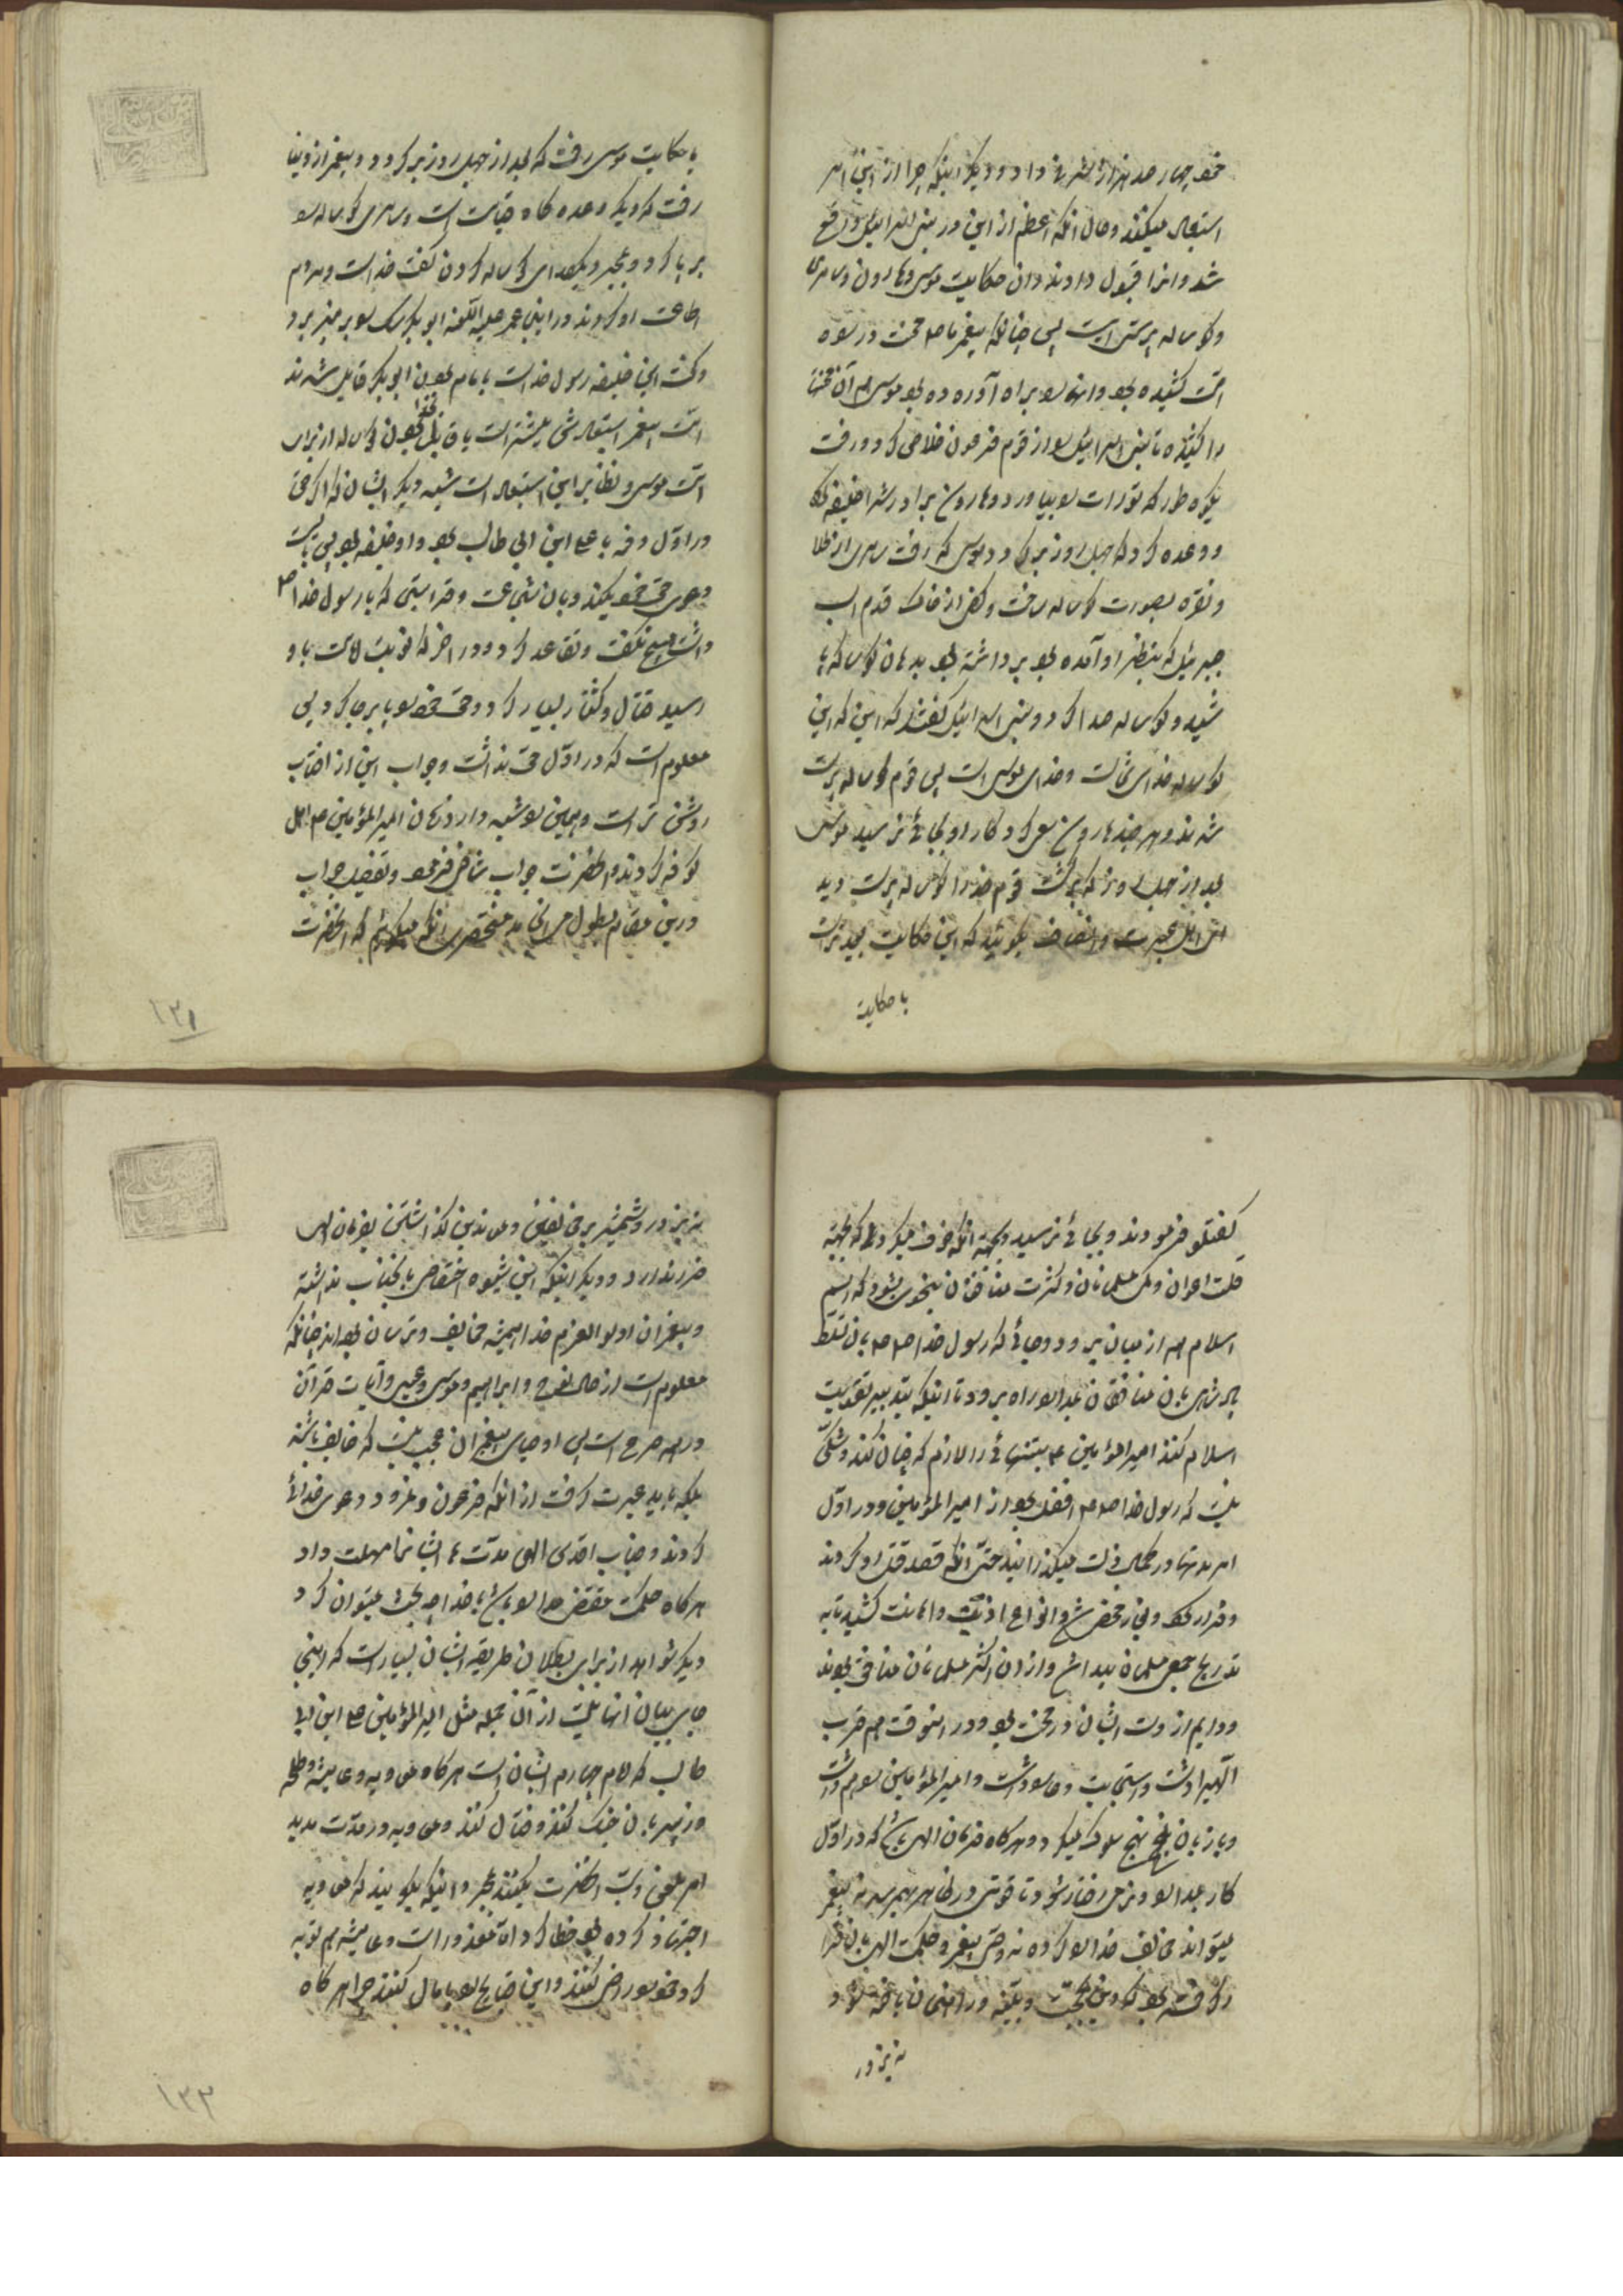 خود چهار صد هزار اشرفی داد و دیگر اینکه چرا از این امر
استبعاد میکنند و حال آنکه اعظم از این در بنی اسرائیل واقع
شد و انرا قبول دارند و ان حکایت موسی و هارون و سامری
و گوساله پرستی است پس چنانکه پیغمبر ما ص محنت در
امت کشیده بود و انها را براه آورده بود موسی هم آن محنتها
را کشیده تا بنی اسرائیل را از قوم فرعون خلاصی کرد و رفت
بکوه طور که تورات را بیاورد و هارون برادرش را خلیفه کرد
و وعده کرد که چهل روز برگردد موسی که رفت سامری از طلا
و نقره بصورت گوساله ساخت و کفی از خاک قدم اسب
جبرئیل که بنظر او آمده بود برداشته بود بدهان گوساله
پاشید و گوساله صدا کرد و بنی اسرائیل گفتند که این
گوساله خدای شماست و خدای موسی است پس قوم گوساله پرست
شدند و هر چند هارون سعی کرد کار او بجائی نرسید موسی
بعد از چهل روز که برگشت قوم خود را گوساله پرست دید
اهل عبرت و انصاف بگوئید که این حکایت بعیدتر است
با حکایت
با حکایت موسی رفت که بعد از چهل روز برگردد و پیغمبر از دنیا
رفت که دیگر وعده گاه قیامت است و سامری گوساله را
بر پا کرد و بمجرد یکصدای گوساله کردن گفت خداست و مردم
اطاعت او کردند در اینجا عمر علیه اللعنه ابو بکر را بر منبر برد
و گفت این خلیفه رسول خداست بامام بودن ابو بکر قایل شدند
امت پیغمبر استبعادش بیشتر است یا قایل بخدا بودن گوساله از برای
امت موسی و نظایر این استبعاد است شبهه دیگر ایشان که اگر حق
در اول وفه با علی ابن ابی طالب بود و او خلیفه بود پس بایست
دعوی حق خود بکند و بان شجاعت و قرابتی که با رسول خدا ص
داشت هیچ نگفت و تقاعد کرد و در اخر که نوبت خلافت باو
رسید قتال و کشتار بسیار کرد و حق خود را پا برجا کرد پس
معلوم است که در اول حق نداشت و جواب این از افتاب
روشن تر است و همین را شبهه وارد زمان امیر المؤمنین ع اهل
کوفه کردند و انحضرت جواب شافی فرمود و تفصیل جواب
در این مقام بطول می انجامد مختصری انکه میگویم که انحضرت
۱۳۱
گفتگو فرمودند و بجائی نرسید و بجهة انکه خوف میکرد که بجهة
قلت اعوان و کمی مسلمانان و کثرت منافقان نحوی بشود که اسم
اسلام هم از میان برود و جائی که رسول خدا ص با ان تسلط
پادشاهی با ان منافقان بمدارا راه برود تا اینکه بتدبیر تقویت
اسلام کند امیر المؤمنین ع بتنهائی را لازم که چنان کند و شکی
نیست که رسول خدا ص افضل بود از امیر المؤمنین و در اول
امر مدتها در کمال ذلت میگذرانید حتی انکه قصد قتل او کردند
و فرار کرد و مخفی شد و انواع اذیت و اهانت کشید تا به
تدریج جمعی مسلمان پیدا شد و از ان اکثر مسلمانان منافق بودند
و دایم از دست ایشان در محنت بود و در انوقت هم قرب
الهی را داشت و استجابت دعا را داشت و امیر المؤمنین را هم داشت
و با زبان نهج سلوک میکرد و هر گاه فرمان الهی باشد که در اول
کار بمدارا و نرمی رفتار شود تا قوتی در ظاهر بهمرسد نه پیغمبر
میتواند مخالف خدا را کرده نه وصی پیغمبر و حکمت الهی بان قرار
گرفته بود که دین بحجت و بینه در امتحان یافته شود
نه بزور
نه بزور و شمشیر بر مخالفین و معاندین گذاشتن بفرمان الهی
ضرر ندارد و دیگر اینکه این شیوه اختصاص بانجناب نداشته
و پیغمبران اولو العزم خدا همیشه خایف و ترسان بوده اند چنانکه
معلوم است از حال نوح و ابراهیم و موسی و عیسی و آیات قرآن
در همه صریح است پس اوصیای پیغمبران عجب نیست که خایف باشند
بلکه باید عبرت گرفت از انکه فرعون و نمرود دعوی خدائی
کردند و جناب اقدس الهی مدتها ایشانرا مهلت داد
هر گاه حکمت مقتضی مدارا باشد با خدا چه بحث میتوان کرد
دیگر شواهد از برای بطلان طریقه ایشان بسیار است که اینجا
جای بیان انها نیست از آن جمله مثل امیر المؤمنین علی ابن ابی
طالب که امام چهارم ایشان است هر گاه معاویه و عایشه و طلحه
و زبیر با ان جنگ کنند و قتال کنند و معاویه در مدت مدید
امر بلعن و سب انحضرت بکنند بمجرد اینکه بگویند که معاویه
اجتهاد کرده بود خطا کرد اما معذور است و عایشه هم توبه
کرد خود را راضی کنند و این قبایح را پامال کنند چرا هر گاه
۱۳۲